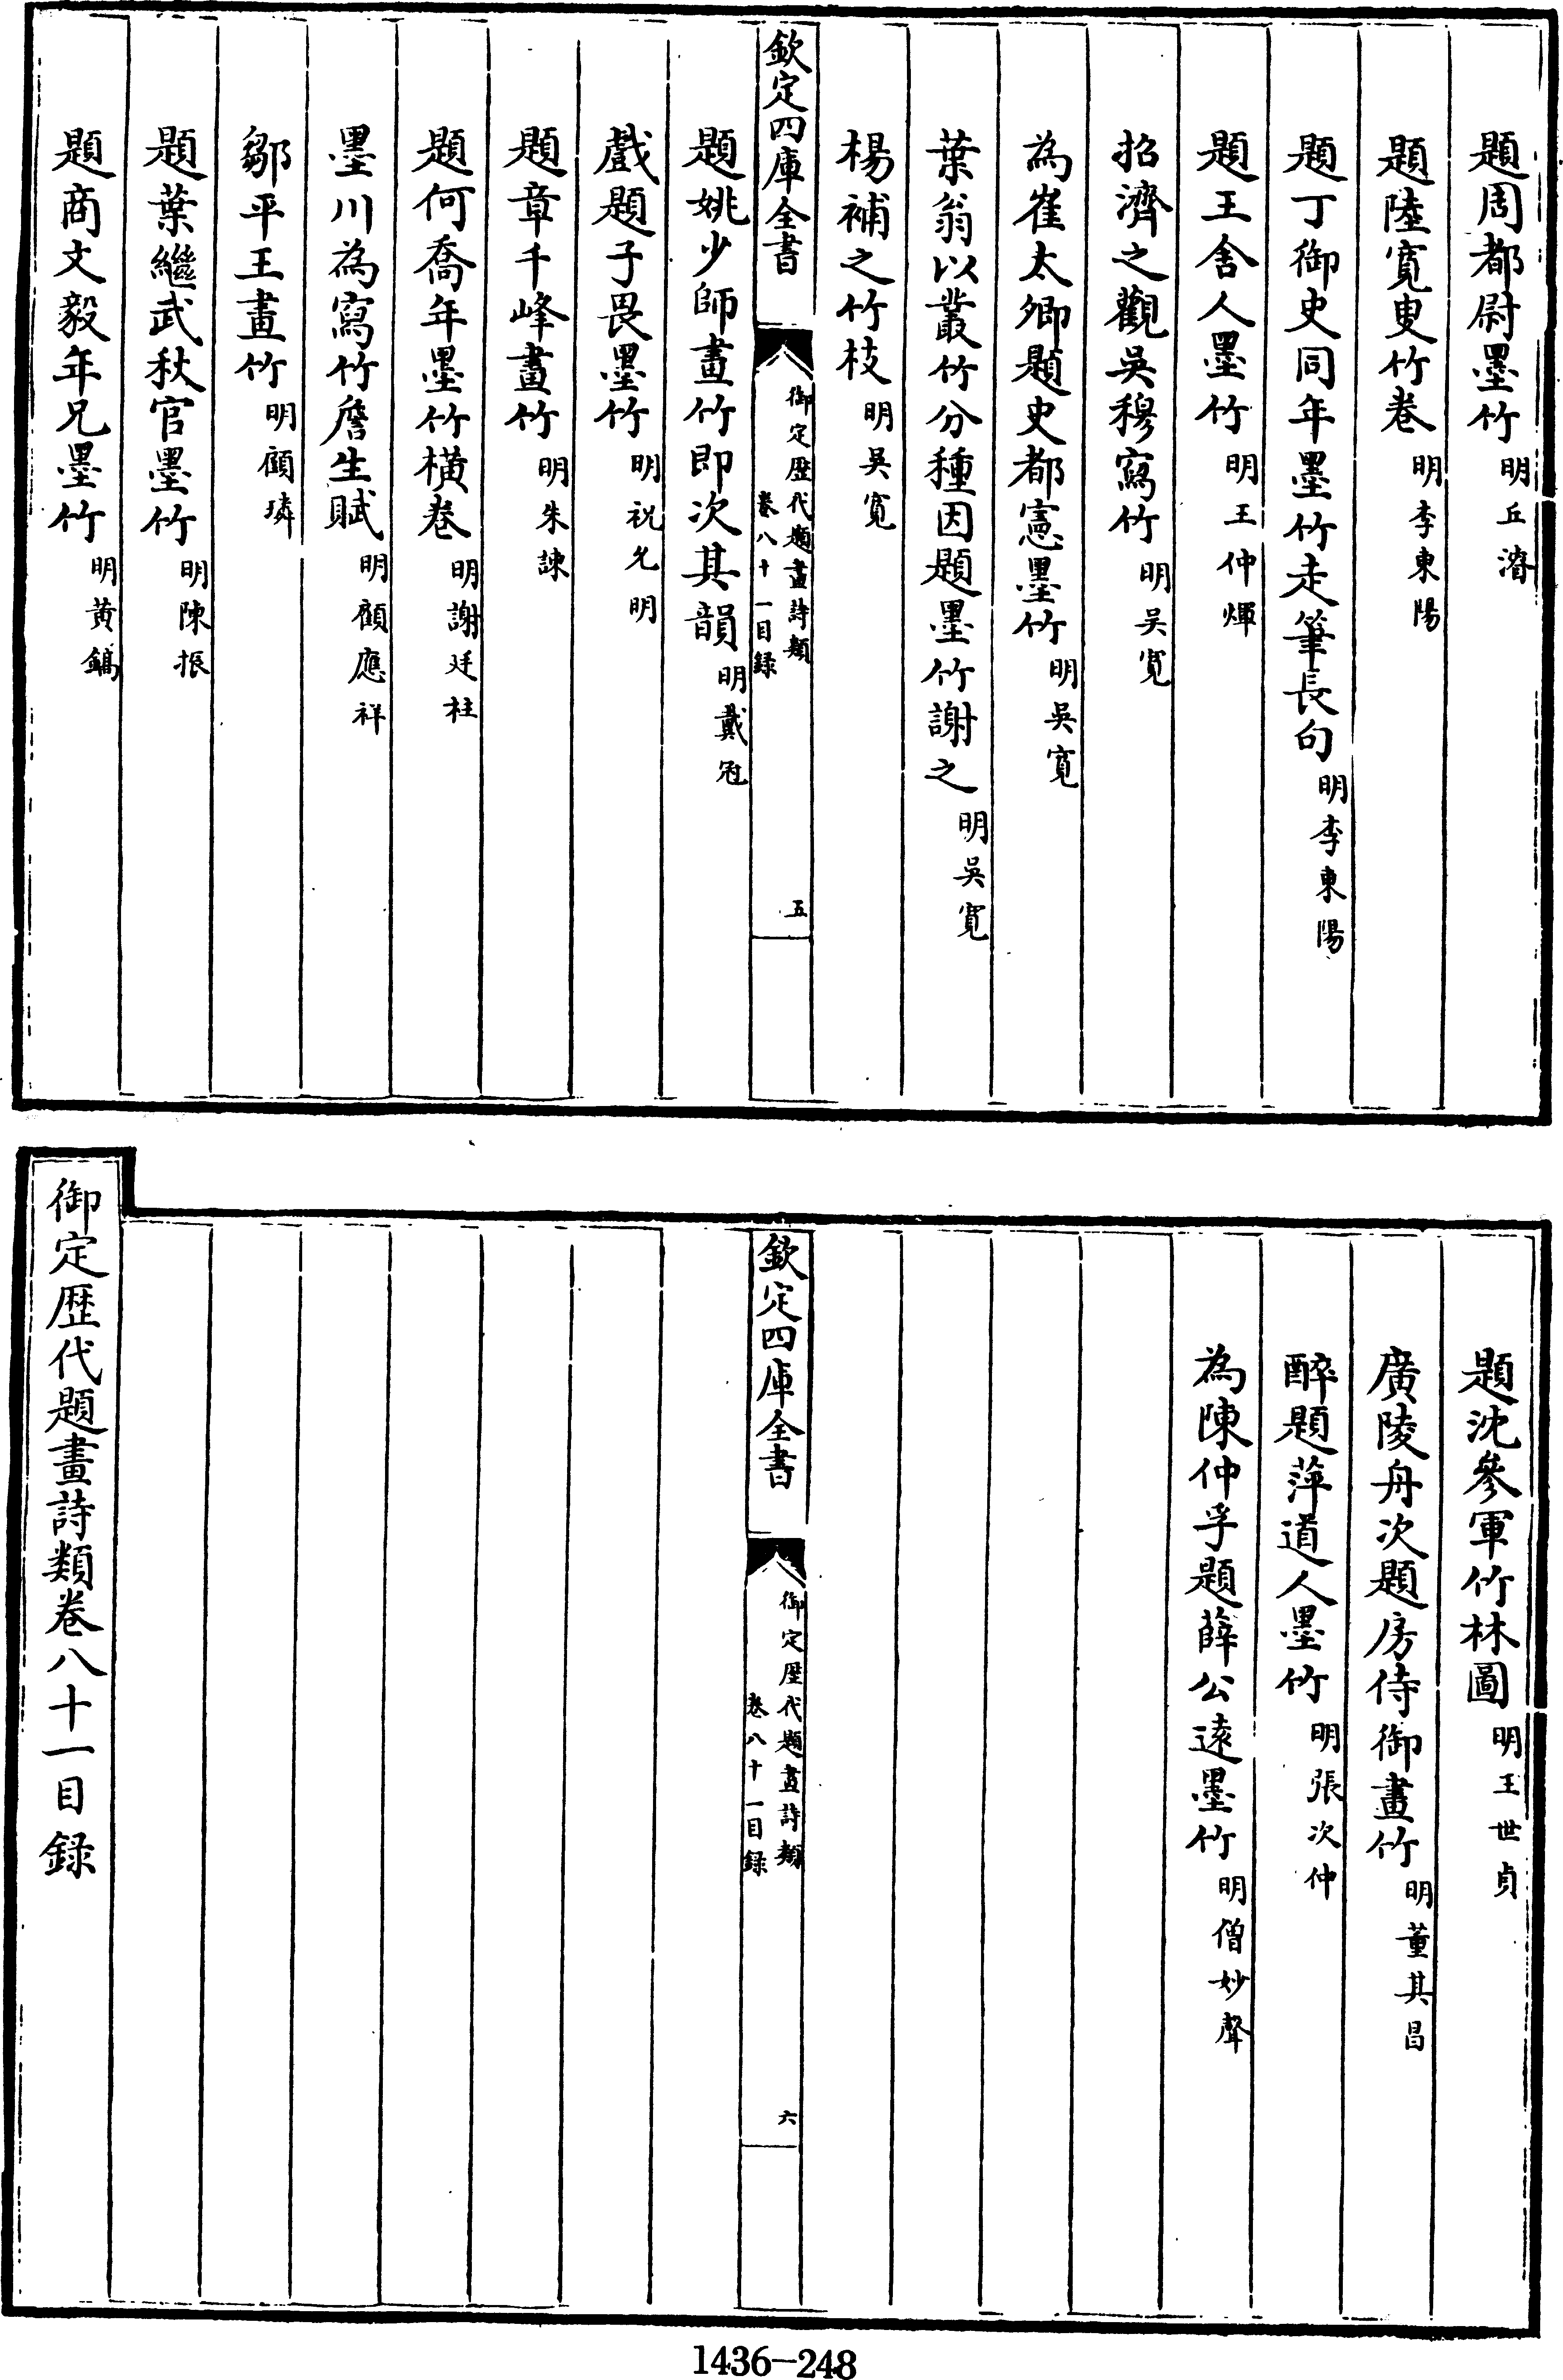 題周都尉墨竹 明丘濬
題陸寛叟竹巻 明李東陽
題丁御史同年墨竹走筆長句 明李東陽
題王舍人墨竹 明王仲煇
招濟之觀吳穆寫竹 明吳寛
為崔太卿題史都憲墨竹 明吳寛
葉翁以叢竹分種因題墨竹謝之 明吳寛
楊補之竹枝 明吳寛
欽定四庫全書
御定歴代題畫詩類
巻八十一目録
五
題姚少師畫竹即次其韻 明戴冠
戲題子畏墨竹 明祝允明
題章千峰畫竹 明朱諫
題何喬年墨竹橫巻 明謝廷柱
墨川為寫竹詹生賦 明顧應祥
鄒平王畫竹 明顧璘
題葉繼武秋官墨竹 明陳振
題商文毅年兄墨竹 明黃鎬
題沈參軍竹林圖 明王世貞
廣陵舟次題房侍御畫竹 明董其昌
醉題萍道人墨竹 明張次仲
為陳仲孚題薛公遠墨竹 明僧妙聲
欽定四庫全書
御定歴代題畫詩類
巻八十一目録
六
御定歴代題畫詩類巻八十一目録
1436-248